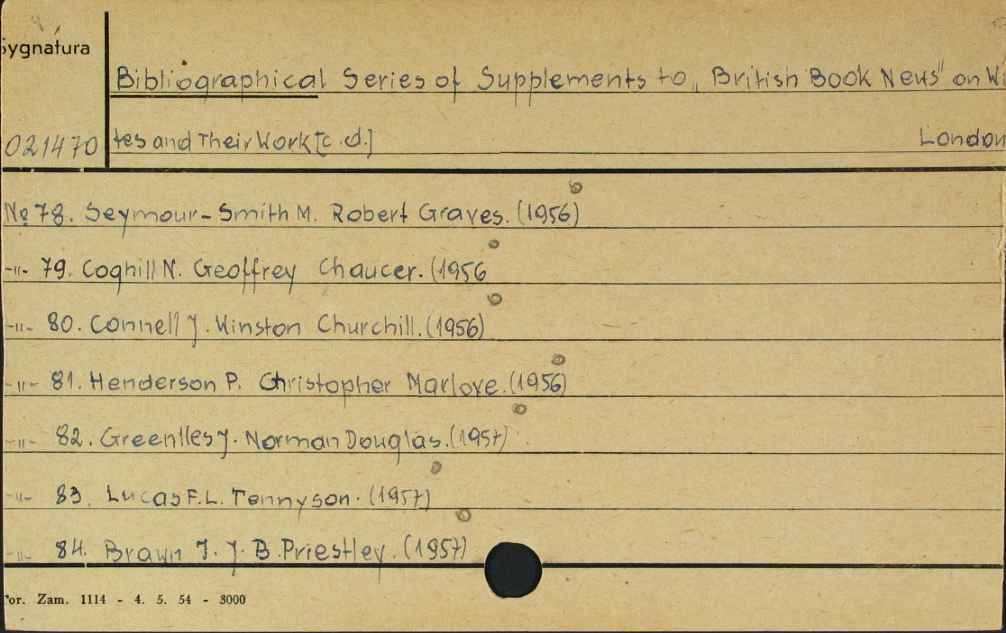 Sygnatura
Bibliographical Series of Supplements to „British Book News" on Wi
021470 tes and Their Work [c.d.] London
№ 78. Seymour-Smith M. Robert Graves. (1956)
-"- 79. Coghill N. Geoffrey Chaucer. (1956
-"- 80. Connell J. Winston Churchill. (1956)
-"- 81. Henderson P. Christopher Marlove. (1956)
-"- 82. Greenlles J. Norman Douglas. (1957)
-"- 83. Lucas F.L. Tennyson. (1957)
-"- 84. Brawn I. J. B. Priestley. (1957)
or. Zam. 1114 - 4. 5. 54 - 3000